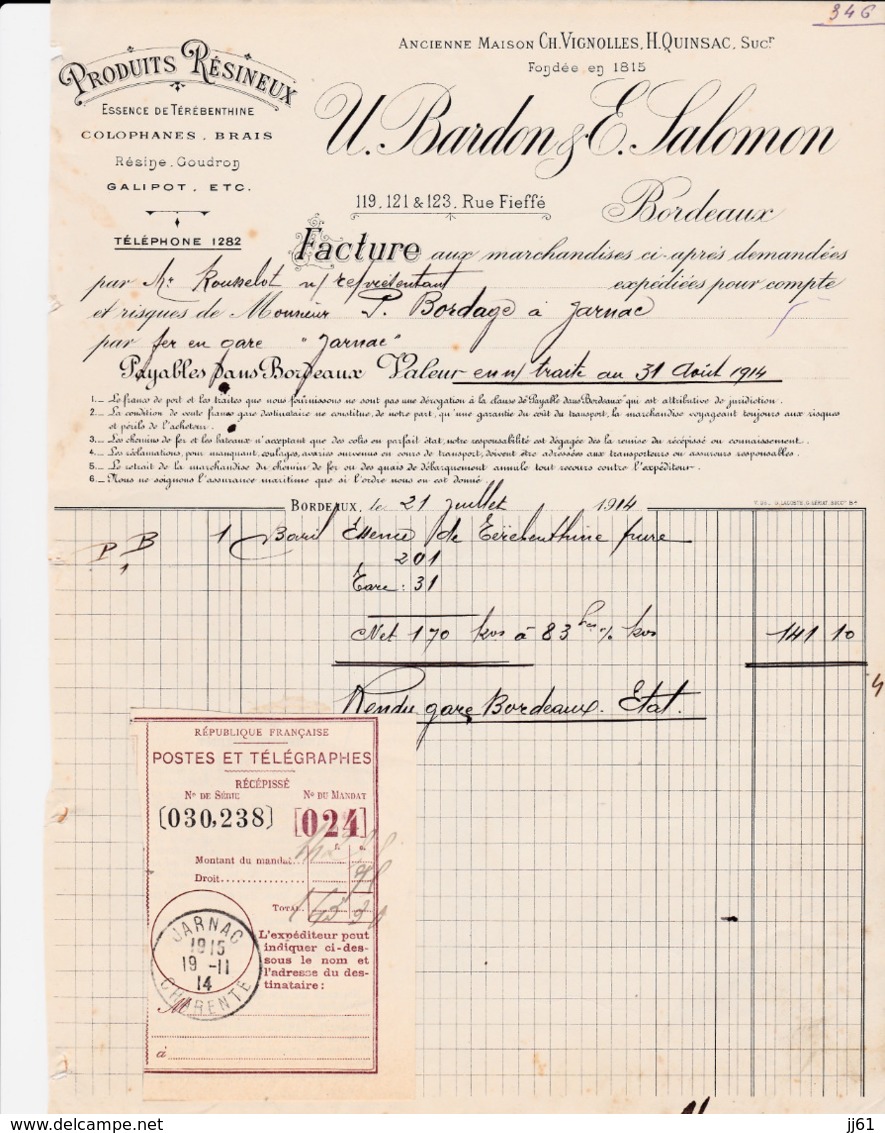 346
ANCIENNE MAISON CH. VIGNOLLES, H. QUINSAC, SUCr
Fondée en 1815
PRODUITS RÉSINEUX
ESSENCE DE TÉRÉBENTHINE
COLOPHANES . BRAIS
Résine . Goudron
GALIPOT . ETC.
TÉLÉPHONE 1282
U. Bardon & E. Salomon
119, 121 & 123, Rue Fieffé
Bordeaux
Facture aux marchandises ci-après demandées
par Mr Rousselot n/ représentant expédiées pour compte
et risques de Monsieur P. Bordage à Jarnac
par fer en gare "Jarnac"
Payables dans Bordeaux Valeur en n/ traite au 31 Août 1914
1._ Le franco de port et les traites que nous fournissons ne sont pas une dérogation à la clause de "Payable dans Bordeaux" qui est attributive de juridiction.
2._ La condition de vente franco gare destinataire ne constitue, de notre part, qu'une garantie du coût du transport, la marchandise voyageant toujours aux risques
et périls de l'acheteur.
3._ Les chemins de fer et les bateaux n'acceptant que des colis en parfait état, notre responsabilité est dégagée dès la remise du récépissé ou connaissement.
4._ Les réclamations, pour manquant, coulages, avaries survenus en cours de transport, doivent être adressées aux transporteurs ou assureurs responsables.
5._ Le retrait de la marchandise du chemin de fer ou des quais de débarquement annule tout recours contre l'expéditeur.
6._ Nous ne soignons l'assurance maritime que si l'ordre nous en est donné.
BORDEAUX, le 21 Juillet 1914
P B 1 Baril Essence de Térébenthine pure
1
201
Tare : 31
Net 170 kos à 83 frs % kos 141 10
Rendu gare Bordeaux. Etat.
RÉPUBLIQUE FRANÇAISE
POSTES ET TÉLÉGRAPHES
RÉCÉPISSÉ
No DE SÉRIE No DU MANDAT
[030,238] [024]
f. c.
Montant du mandat
Droit
TOTAL
L'expéditeur peut
indiquer ci-des-
sous le nom et
l'adresse du des-
tinataire :
JARNAC
1915
19 -11
14
CHARENTE
M
à
delcampe.net
jj61